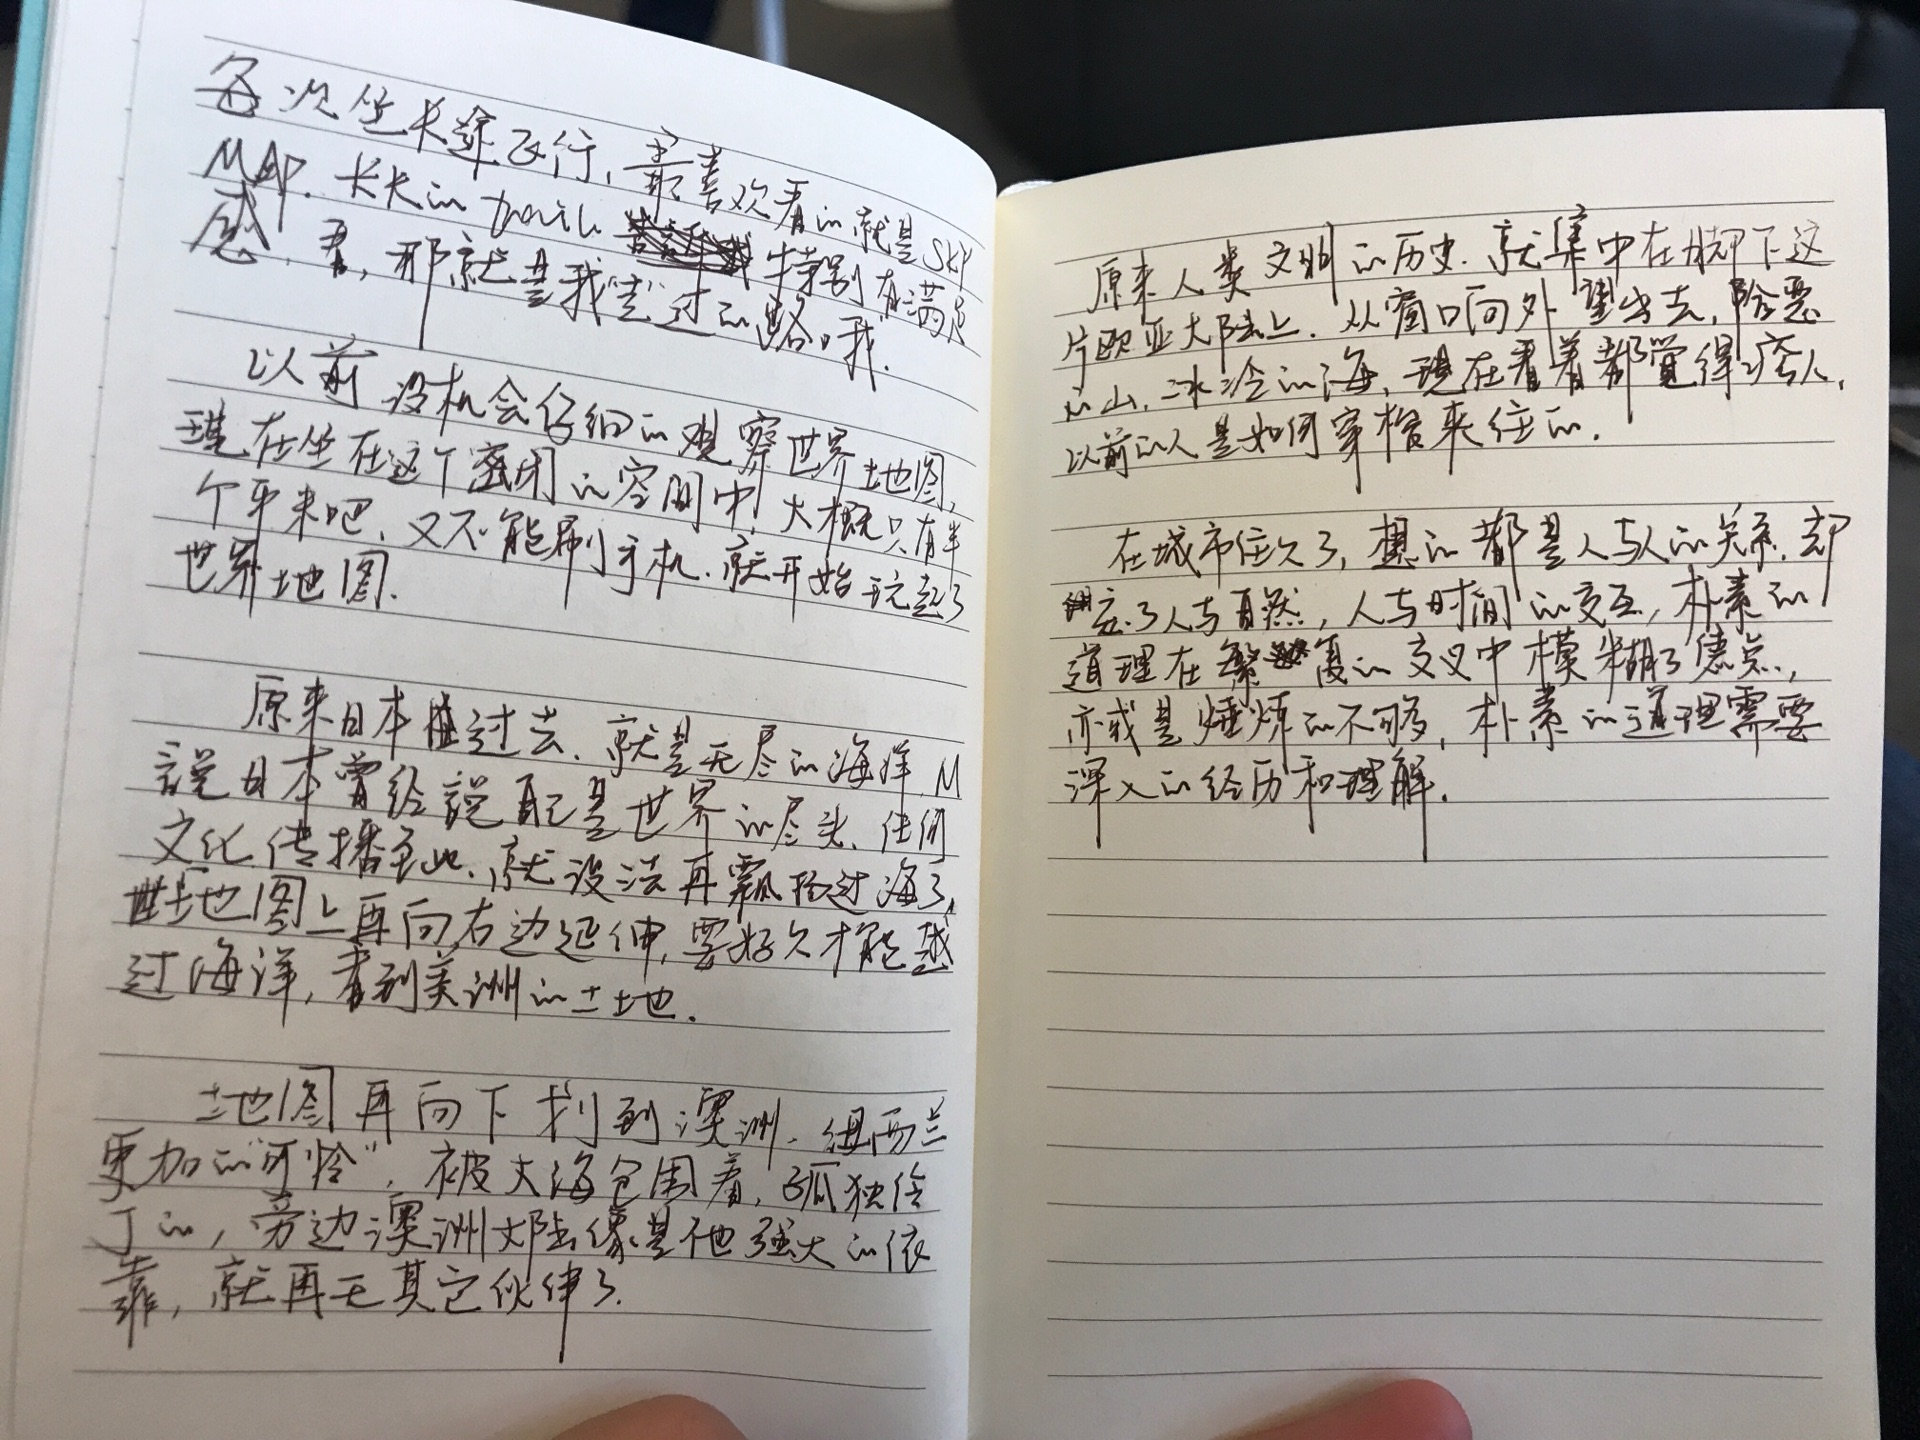 每次坐长途飞行，最喜欢看的就是SKY
MAP. 长长的 trail 特别有满足
感，看，那就是我"走"过的路哦.
以前没机会仔细的观察世界地图，
现在坐在这个密闭的空间中，大概只有半
个平米吧，又不能刷手机，就开始玩起了
世界地图.
原来日本 过去，就是无尽的海洋，M
说日本曾经说自己是世界的尽头，任何
文化传播至此，就没法再飘 过海了，
地图上再向右边延伸，要好久才能越
过海洋，看到美洲的土地.
地图再向下 到澳洲，纽西兰
更加的"可怜"，被大海包围着，孤独伶
丁的，旁边澳洲大陆像是他强大的依
靠，就再无其它伙伴了.
原来人类文明的历史，就集中在脚下这
片欧亚大陆上. 从窗口向外望出去，险恶
的山，冰冷的海，现在看着都觉得 人，
以前的人是如何穿梭来往的.
在城市住久了，想的都是人与人的关系，却
忘了人与自然，人与时间的交互，朴素的
道理在繁复的交叉中模糊了 点，
亦或是 炼的不够，朴素的道理需要
深入的经历和理解.